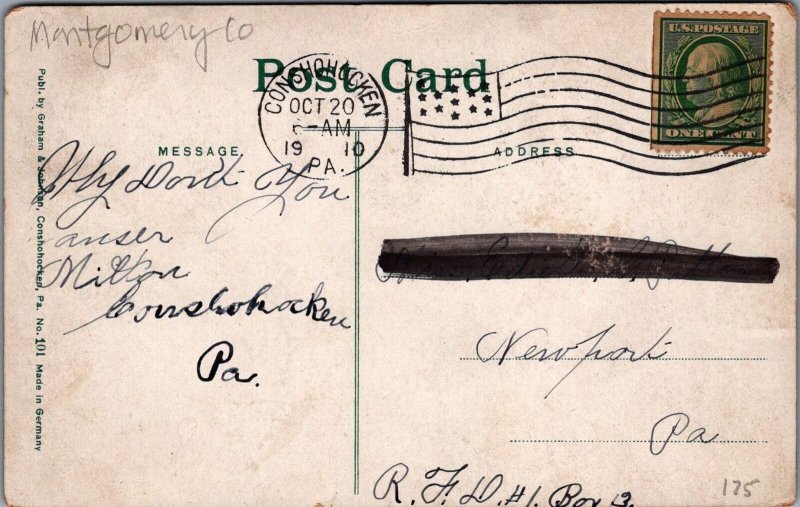 Montgomery Co
Post Card
CONSHOHOCKEN
OCT 20
-AM
19 10
PA.
U.S. POSTAGE
ONE CENT
MESSAGE
ADDRESS
Why Don't You
anser
Milton
Conshohocken
Pa.
Newport
Pa
R. F. D. #1. Box 3.
175
Publ. by Graham & Johnson, Conshohocken, Pa. No. 101 Made in Germany